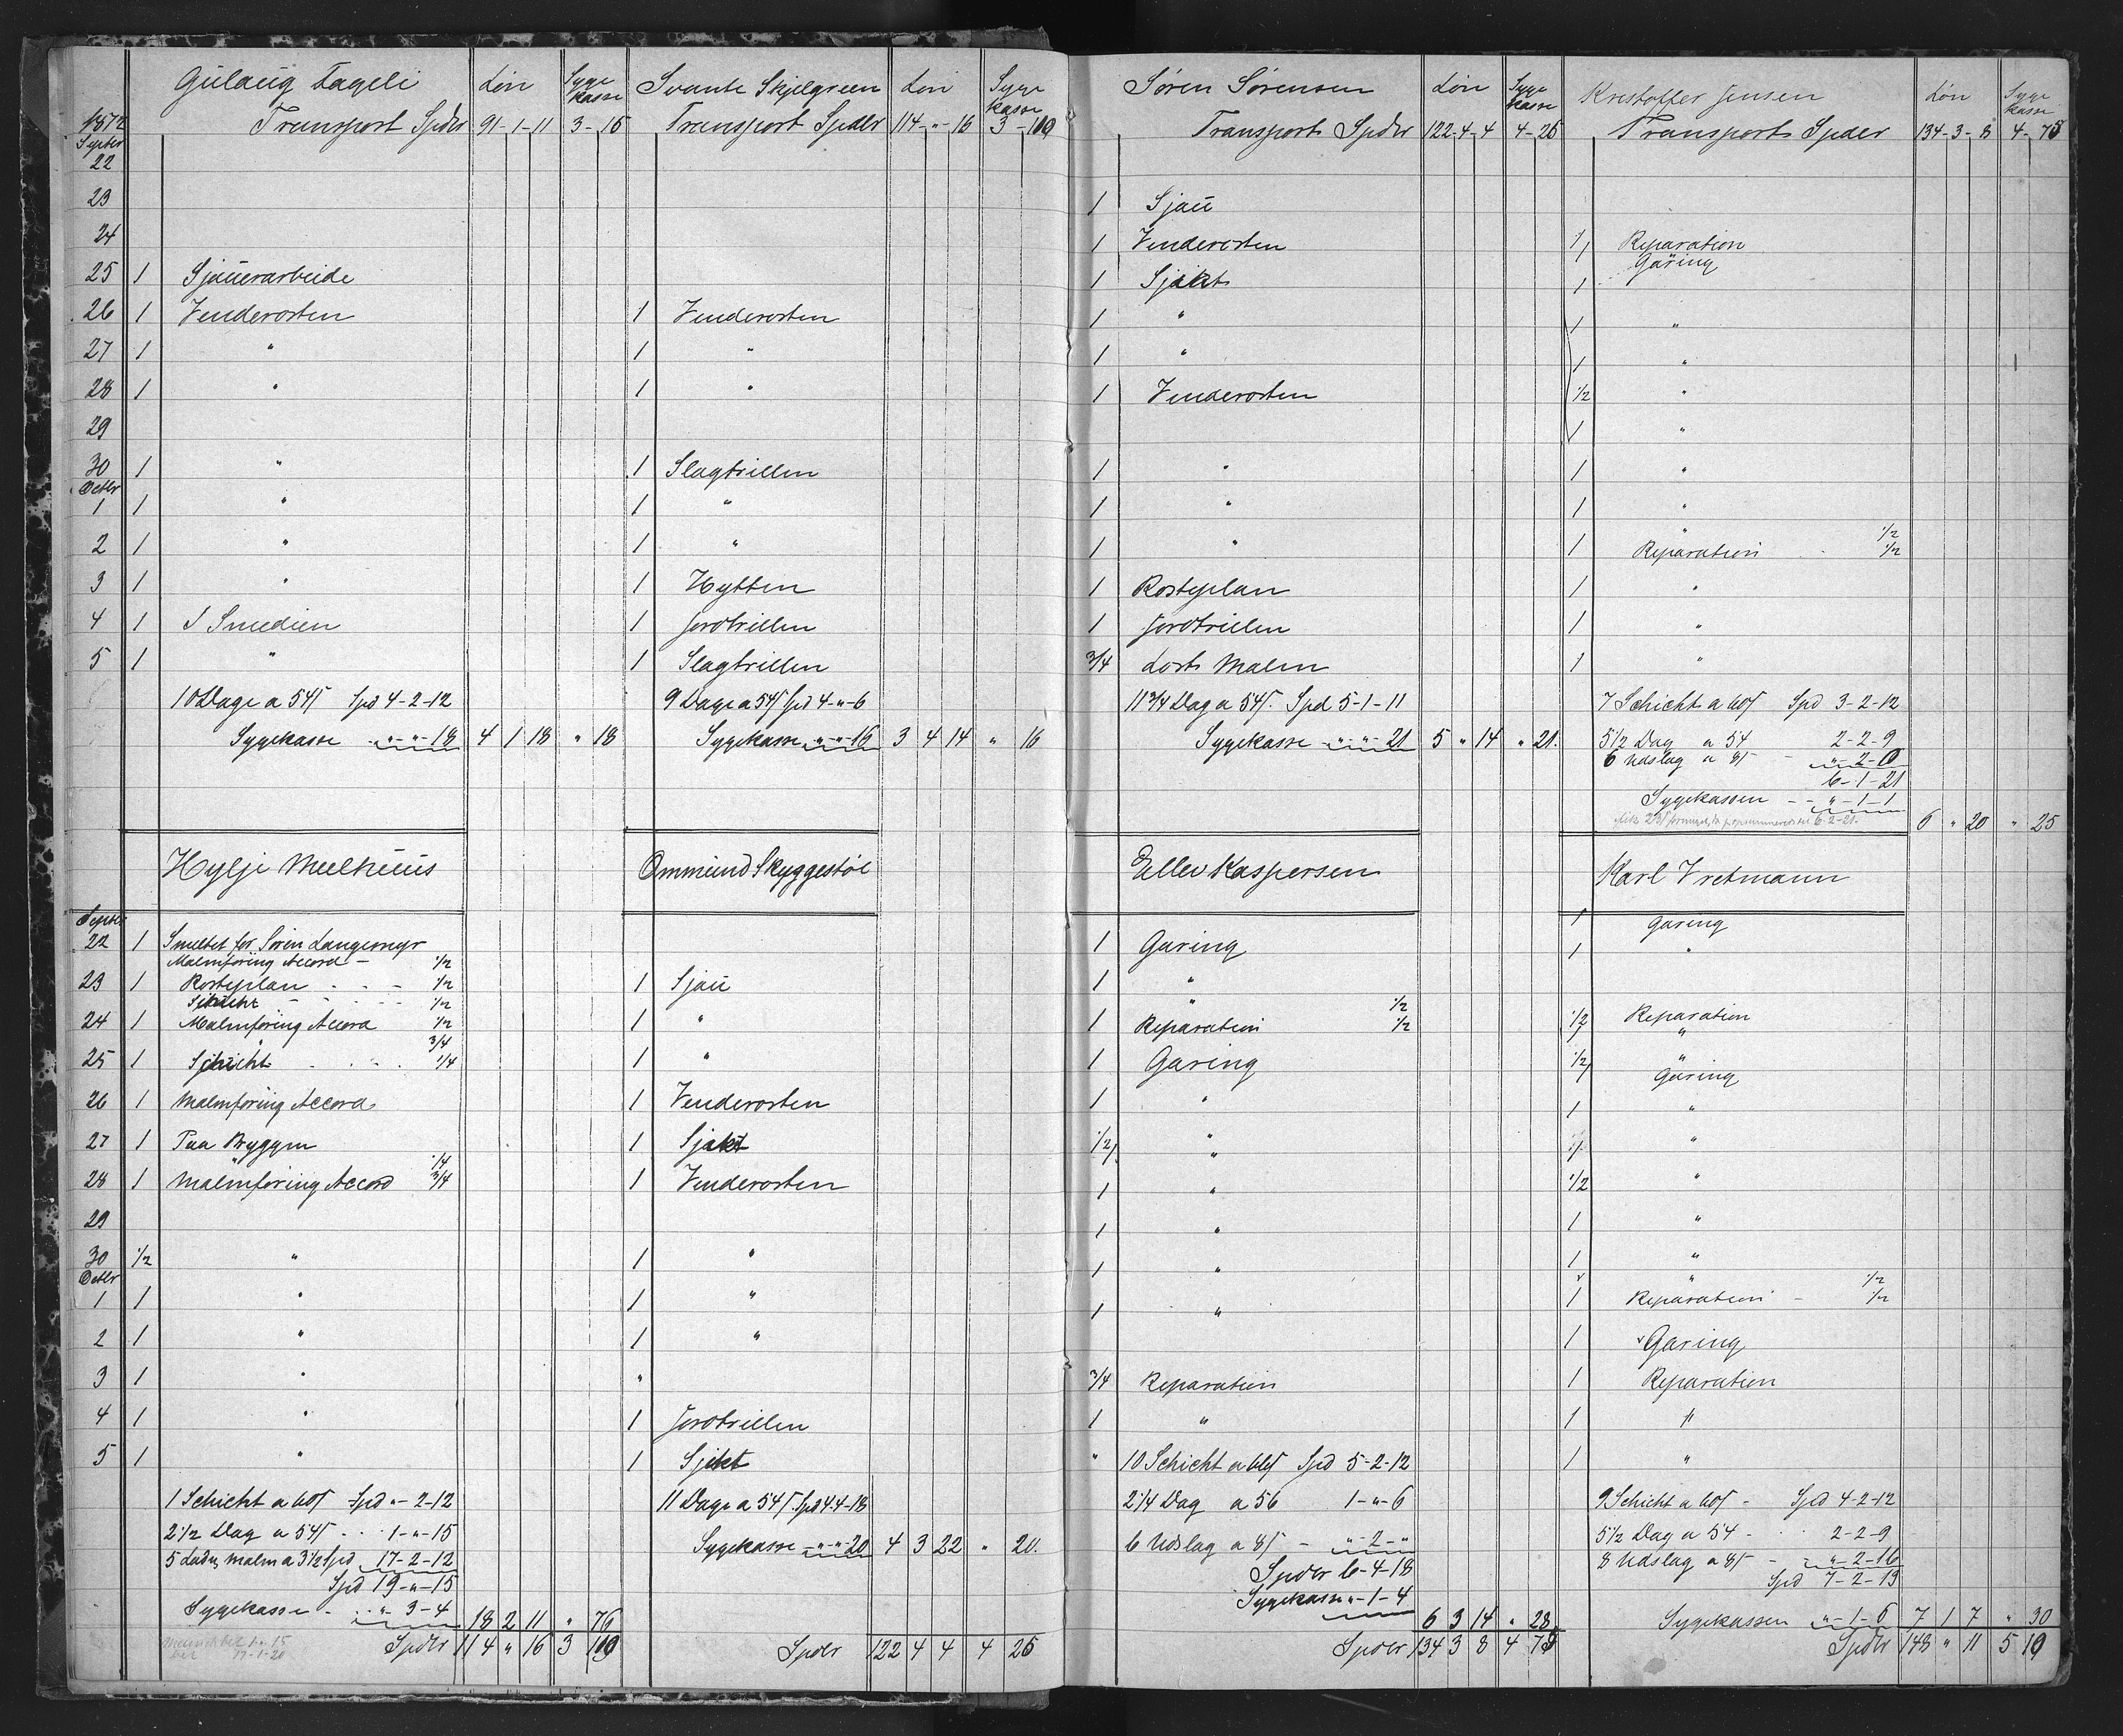 Gulaug Fageli Løn Syge kasse
1872 Transport Spdlr 91-1-11 3-15
Septbr
22
23
24
25 1 Sjauerarbeide
26 1 Venderosten
27 1 "
28 1 "
29
30 1 "
Octbr
1 1 "
2 1 "
3 1 "
4 1 I Smedien
5 1 "
10 Dage a 54/ Spd 4-2-12
Sygekasse - "-"-18 4 1 18 " 18
Hylje Meelhuus
Septbr
22 1 Smeltet for Sørin Langemyr
Malmføring Accord - 1/2
23 1 Rosteplan - - - 1/2
Schicht - - - 1/2
24 1 Malmføring Accord 1/2
" 3/4
25 1 Schicht - - - 1/4
26 1 Malmføring Accord
27 1 Paa Bryggen
" 1/4
28 1 Malmføring Accord 3/4
29
30 1/2 "
Octbr
1 1 "
2 1 "
3 1 "
4 1 "
5 1 "
1 Schicht a 60/ Spd "-2-12
2 1/2 Dag a 54/ - - 1-"-15
5 Ladn. Malm a 3 1/2 Spd 17-2-12
Spd 19-"-15
Sygekasse - - "-3-4 18 2 11 " 76
Spdlr 114 " 16 3 109
Svante Skjelgreen Løn Syge kasse
Transport Spdlr 114-"-16 3-109
1 Venderosten
1 "
1 "
1 Slagtrillen
1 "
1 "
1 Hytten
1 Jordtrillen
1 Slagtrillen
9 Dage a 54/ Spd 4-"-6
Sygekasse "-"-16 3 4 14 " 16
Ommund Skyggestøl
1 Sjau
1 "
1 "
1 Venderosten
1 Sjakt
1 Venderosten
1 "
1 "
1 "
"
1 Jordtrillen
1 Sjakt
11 Dage a 54/ Spd 4-4-18
Sygekasse - "-"-20 4 3 22 " 20.
Spdlr 122 4 4 4 25
Søren Sørensen Løn Syge kasse
Transport Spdlr 122-4-4 4-25
1 Sjau
1 Venderosten
1 Sjakt
1 "
1 "
1 Venderosten
1 "
1 "
1 "
1 Rosteplan
1 Jordtrillen
3/4 Lost Malm
11 3/4 Dag a 54/. Spd 5-1-11
Sygekasse "-"-21 5 " 14 " 21.
Ellev Kaspersen
1 Garing
1 "
" 1/2
1 Reparation 1/2
1 Garing
1 "
1/2 "
1 "
1 "
1 "
1 "
1 "
3/4 Reparation
1 "
" 10 Schicht a 60/ Spd 5-2-12
2 1/4 Dag a 56 1-"-6
6 Udslag a 8/ - "-2-"
Spdlr 6-4-18
Sygekasse "-1-4
6 3 14 " 28
Spdlr 134 3 8 4 75
Kristoffer Jensen Løn Syge kasse
Transport Spdlr 134-3-8 4-75
1 Reparation
1 Garing
1
1 "
1 "
1/2 "
1 "
1 "
1 "
" 1/2
1 Reparation 1/2
1 "
1 "
1 "
7 Schicht a 60/ Spd 3-2-12
5 1/2 Dag a 54 2-2-9
6 Udslag a 8/ - "-2-0
6-1-21
Sygekassen - - "-1-1
6 " 20 " 25
Karl Vretmann
1 Garing
1 "
1/2 Reparation
1 "
1/2 "
1 Garing
1 "
1 "
1/2 "
1 "
1 "
" 1/2
1 Reparation - 1/2
1 Garing
1 Reparation
1 "
1 "
9 Schicht a 60/ - Spd 4-2-12
5 1/2 Dag a 54 - 2-2-9
8 Udslag a 8/ - "-2-16
Spd 7-2-13
Sygekassen "-1-6 7 1 7 " 30
Spdlr 148 " 11 5 10